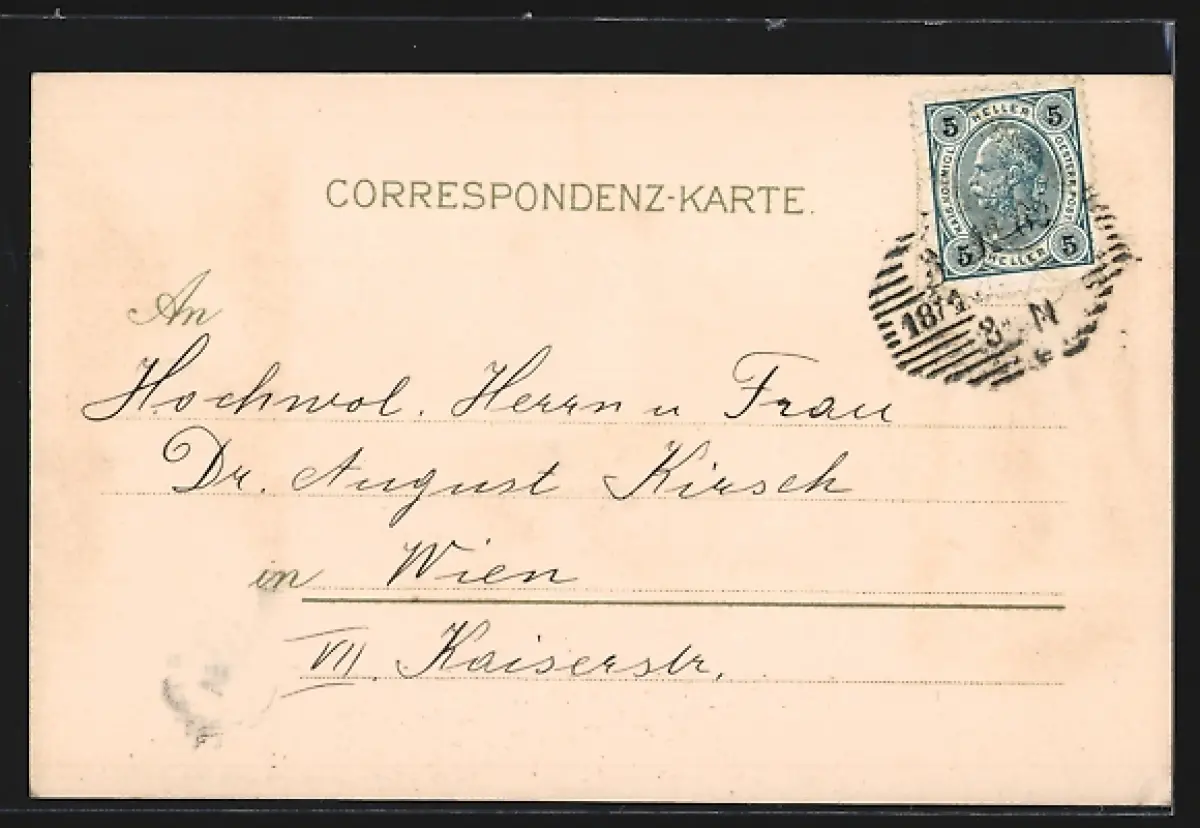 CORRESPONDENZ-KARTE.
5 HELLER 5
KAIS. KOENIGL. OESTERR. POST
5 HELLER 5
8 N
An
Hochwol. Herrn u Frau
Dr. August Kirsch
in Wien
VII. Kaiserstr.